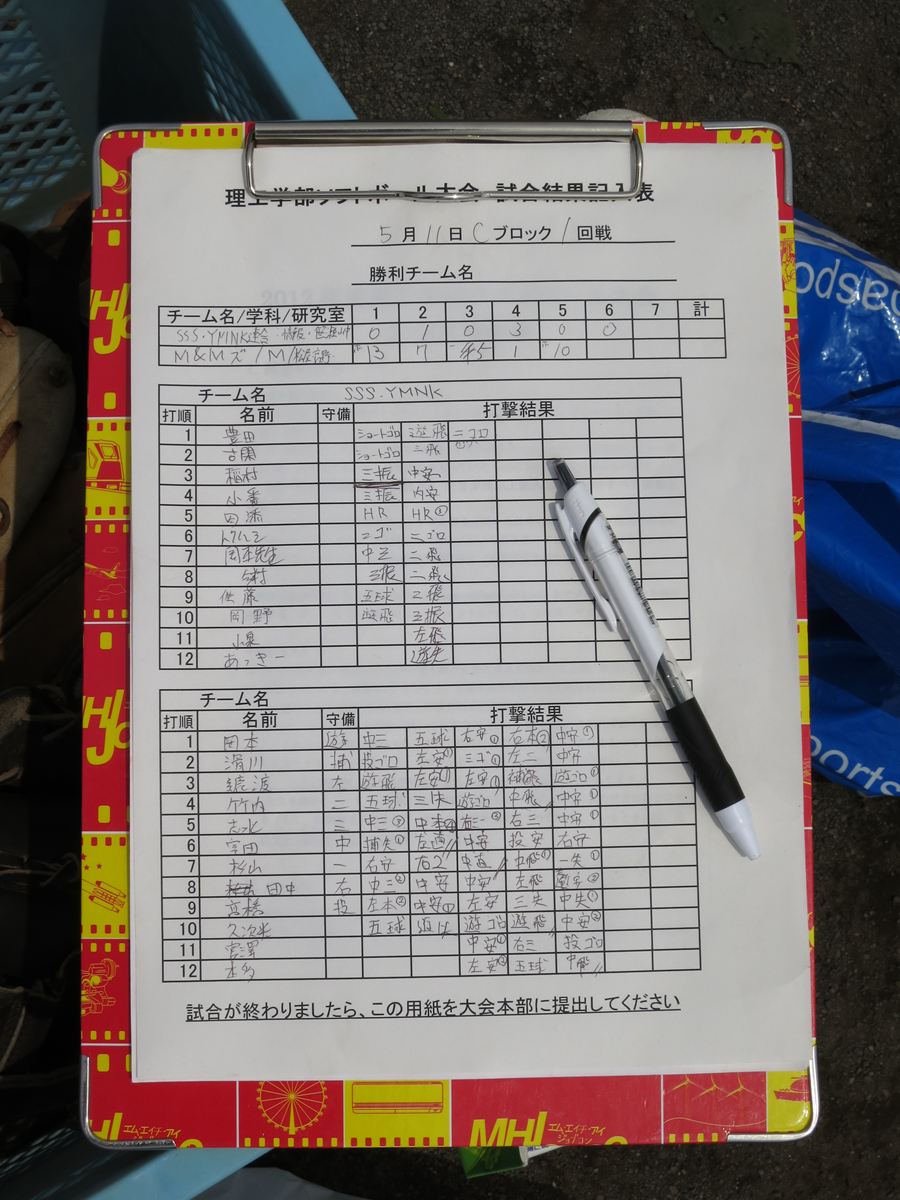 理工学部ソフトボール大会 試合結果記入表
5月11日Cブロック1回戦
勝利チーム名
チーム名/学科/研究室 1 2 3 4 5 6 7 計
SSS.YMNK 0 1 0 3 0 0
M&Mズ/M/ 13 7 1 10
チーム名 SSS.YMNK
打順 名前 守備 打撃結果
1 豊田 ショートゴロ 遊飛 ニゴロ
2 古関 ショートゴロ 三飛
3 稲村 三振 中安
4 小番 三振 内安
5 田添 HR HR①
6 ニゴ ニゴロ
7 二飛
8 三振 二飛
9 佐藤 五球 二飛
10 岡野 遊飛 三振
11 小泉 左飛
12 あっきー 遊失
チーム名
打順 名前 守備 打撃結果
1 岡本 遊 中三 五球 右安 右本② 中安①
2 滑川 捕 投ゴロ 左安① 左二 中安
3 左 遊飛 左安① 左安 遊ゴロ
4 竹内 二 五球 三失 遊ゴロ 中飛 中安
5 志水 三 中三 中本 右三 中安
6 中 捕失 左直 中安 投安 右安
7 杉山 一 右安 右ゴ 中直 中飛 一失①
8 田中 右 中三② 中安 中安 左飛
9 高橋 投 左本② 中安① 左安 三失 中失①
10 五球 遊ゴロ 遊飛 中安
11 宮澤 中安① 右三 投ゴロ
12 本多 左安 五球 中飛
試合が終わりましたら、この用紙を大会本部に提出してください
MHI
エム・エイチ・アイ
ジョブコン
ports